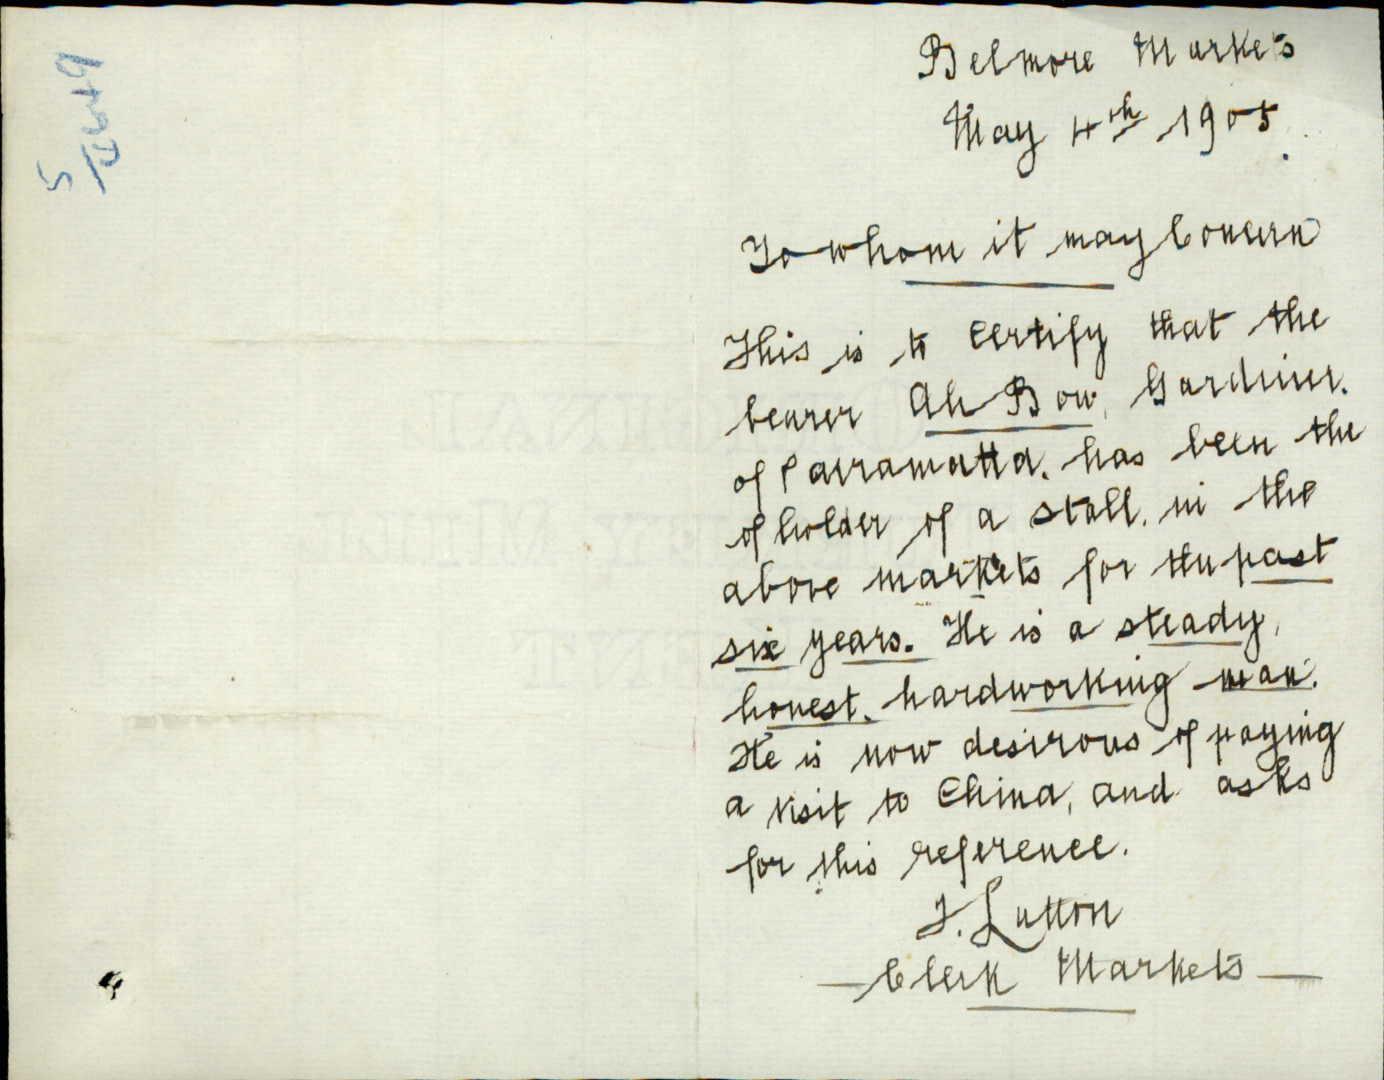 Belmore Markets
May 4th 1905.
To whom it may Concern
This is to certify that the
bearer Ah Bow, Gardiner.
of Parramatta. has been the
of holder of a stall. in the
above markets for the past
six years. He is a steady,
honest, hardworking man.
He is now desirous of paying
a visit to China, and asks
for this reference.
J. Lutton
— Clerk Markets —
ORIGINAL
MILL
KENT
5